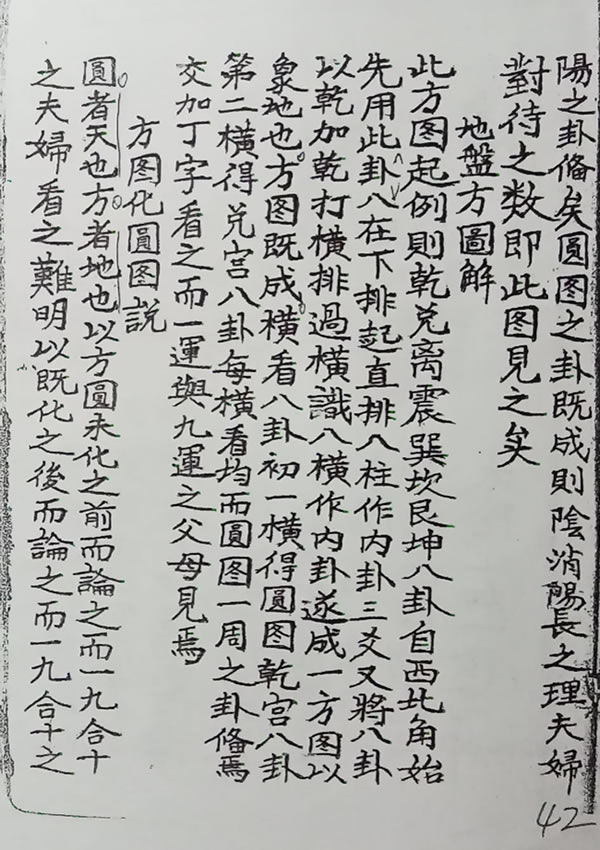 陽之卦俻矣圓图之卦既成則陰消陽長之理夫婦
對待之数即此图見之矣
地盤方圖解
此方图起例則乾兑离震巽坎艮坤八卦自西北角始
先用此卦八在下排起直排八柱作内卦三爻又將八卦
以乾加乾打横排過横識八横作内卦遂成一方图以
象地也方图既成横看八卦初一横得圓图乾宫八卦
第二横得兑宫八卦每横看均而圓图一周之卦俻焉
交加丁字看之而一運與九運之父母見焉
方图化圓图説
圓者天也方者地也以方圓未化之前而論之而一九合十
之夫婦看之難明以既化之後而論之而一九合十之
42